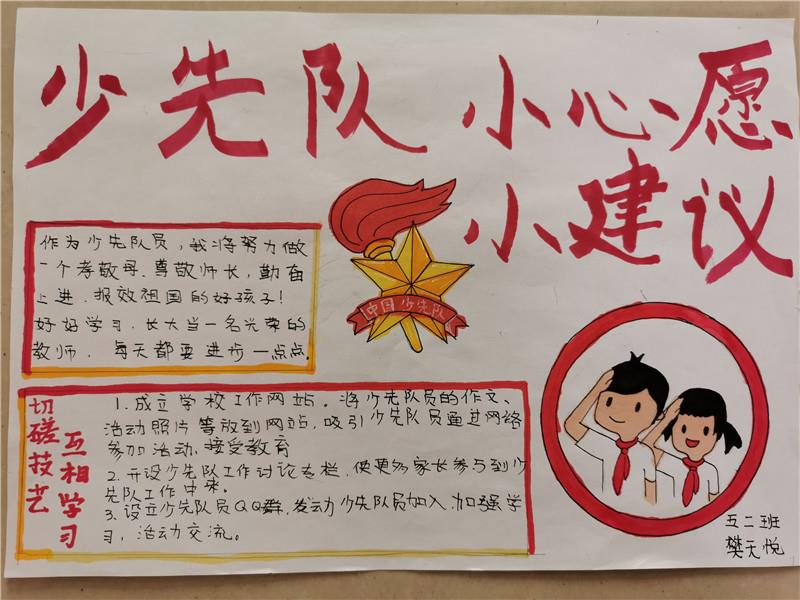 少先队 小心愿
小建议
作为少先队员，我将努力做
一个孝敬母、尊敬师长，勤奋
上进、报效祖国的好孩子！
好好学习，长大当一名光荣的
教师，每天都要进步一点点。
中国少先队
切磋技艺
互相学习
1.成立学校工作网站。将少先队员的作文、
活动照片等放到网站，吸引少先队员通过网络
参加活动、接受教育
2.开设少先队工作讨论专栏，使更多家长参与到少
先队工作中来。
3.设立少先队员QQ群，发动少先队员加入，加强学
习，活动交流。
五二班
樊天悦